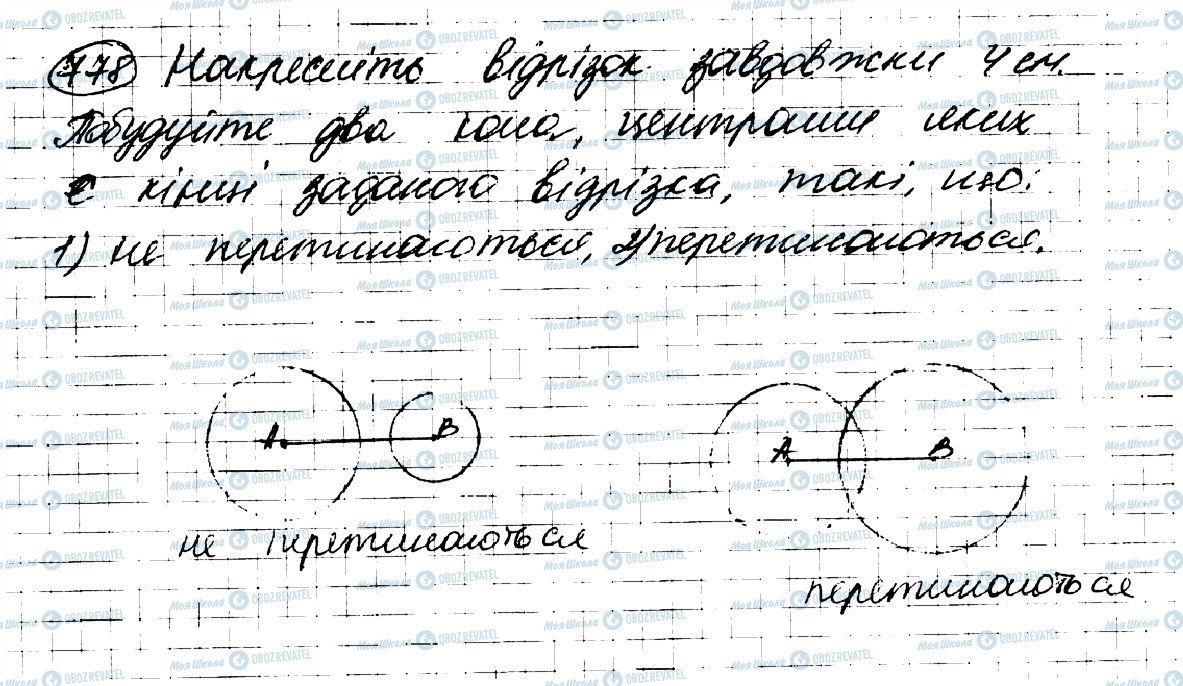 778 Накресліть відрізок завдовжки 4 см.
Побудуйте два кола, центрами яких
є кінці заданого відрізка, такі, що:
1) не перетинаються, 2) перетинаються.
A B
A B
не перетинаються
перетинаються
Моя Школа OBOZREVATEL